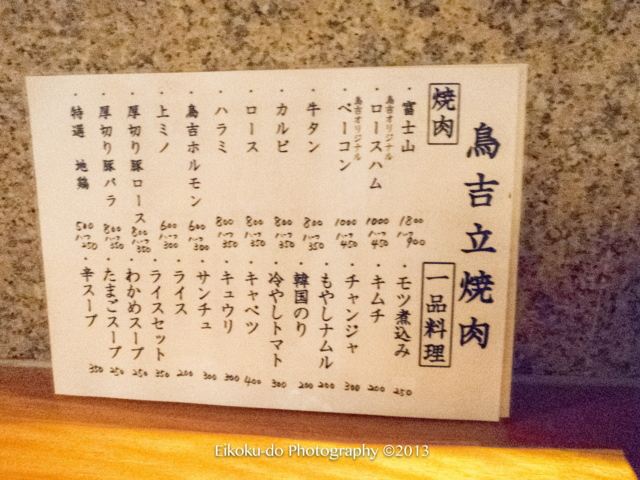 鳥吉立焼肉
焼肉
・富士山 1800 ハーフ900
・鳥吉オリジナル
ロースハム 1000 ハーフ450
・鳥吉オリジナル
ベーコン 1000 ハーフ450
・牛タン 800 ハーフ350
・カルビ 800 ハーフ350
・ロース 800 ハーフ350
・ハラミ 800 ハーフ350
・鳥吉ホルモン 600 ハーフ300
・上ミノ 600 ハーフ300
・厚切り豚ロース 800 ハーフ350
・厚切り豚バラ 800 ハーフ350
・特選 地鶏 500 ハーフ250
一品料理
・モツ煮込み 250
・キムチ 200
・チャンジャ 300
・もやしナムル 200
・韓国のり 200
・冷やしトマト 300
・キャベツ 400
・キュウリ 300
・サンチュ 300
・ライス 200
・ライスセット 350
・わかめスープ 250
・たまごスープ 250
・辛スープ 350
Eikoku-do Photography ©2013